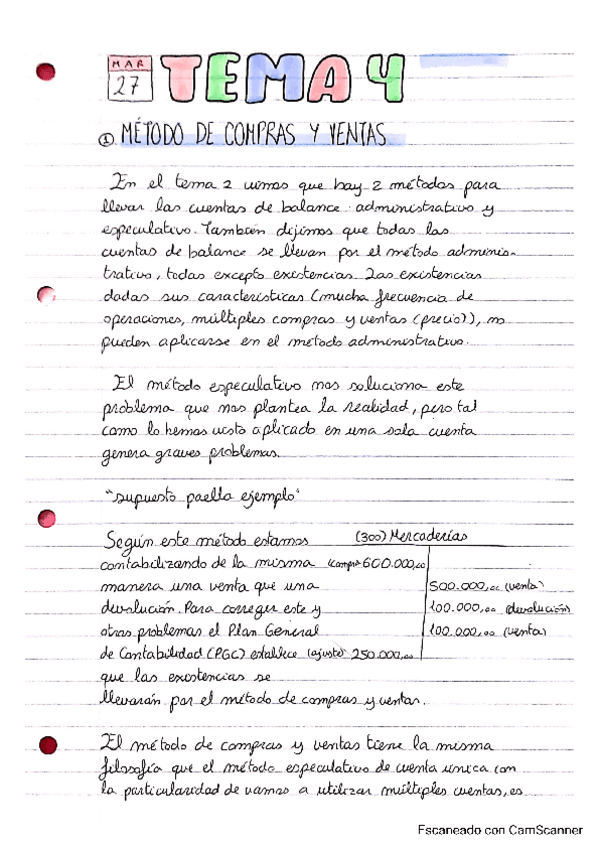 MAR
27
TEMA 4
① MÉTODO DE COMPRAS Y VENTAS
En el tema 2 vimos que hay 2 métodos para
llevar las cuentas de balance: administrativo y
especulativo. También dijimos que todas las
cuentas de balance se llevan por el método adminis-
trativo, todas excepto existencias. Las existencias
dadas sus características (mucha frecuencia de
operaciones, múltiples compras y ventas (precio)), no
pueden aplicarse en el método administrativo.
El método especulativo nos soluciona este
problema que nos plantea la realidad, pero tal
como lo hemos visto aplicado en una sola cuenta
genera graves problemas.
"supuesto paella ejemplo"
Según este método estamos
contabilizando de la misma
manera una venta que una
devolución. Para corregir este y
otros problemas el Plan General
de Contabilidad (PGC) establece
que las existencias se
llevarán por el método de compras y ventas.
(300) Mercaderías
(compra) 600.000,00
500.000,00 (venta)
100.000,00 (devolución)
100.000,00 (venta)
(ajuste) 250.000,00
El método de compras y ventas tiene la misma
filosofía que el método especulativo de cuenta única con
la particularidad de vamos a utilizar múltiples cuentas, es
Escaneado con CamScanner